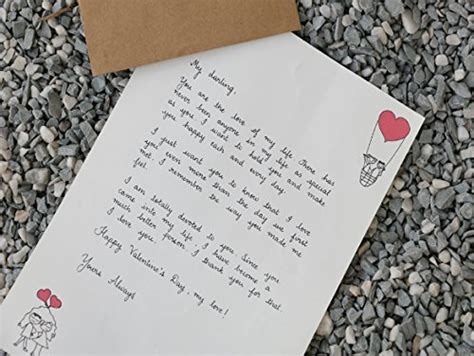 My darling,
You are the love of my life. There has
never been anyone in my life as special
as you. I want to hold you and make
you happy each and every day.
I just want you to know that I love
you even more than the day we first
met. I remember the way you made me
feel.
I am totally devoted to you. Since you
came into my life I have become a
much better person. I thank you for that.
I love you.
Happy Valentine's Day, my love!
Yours Always